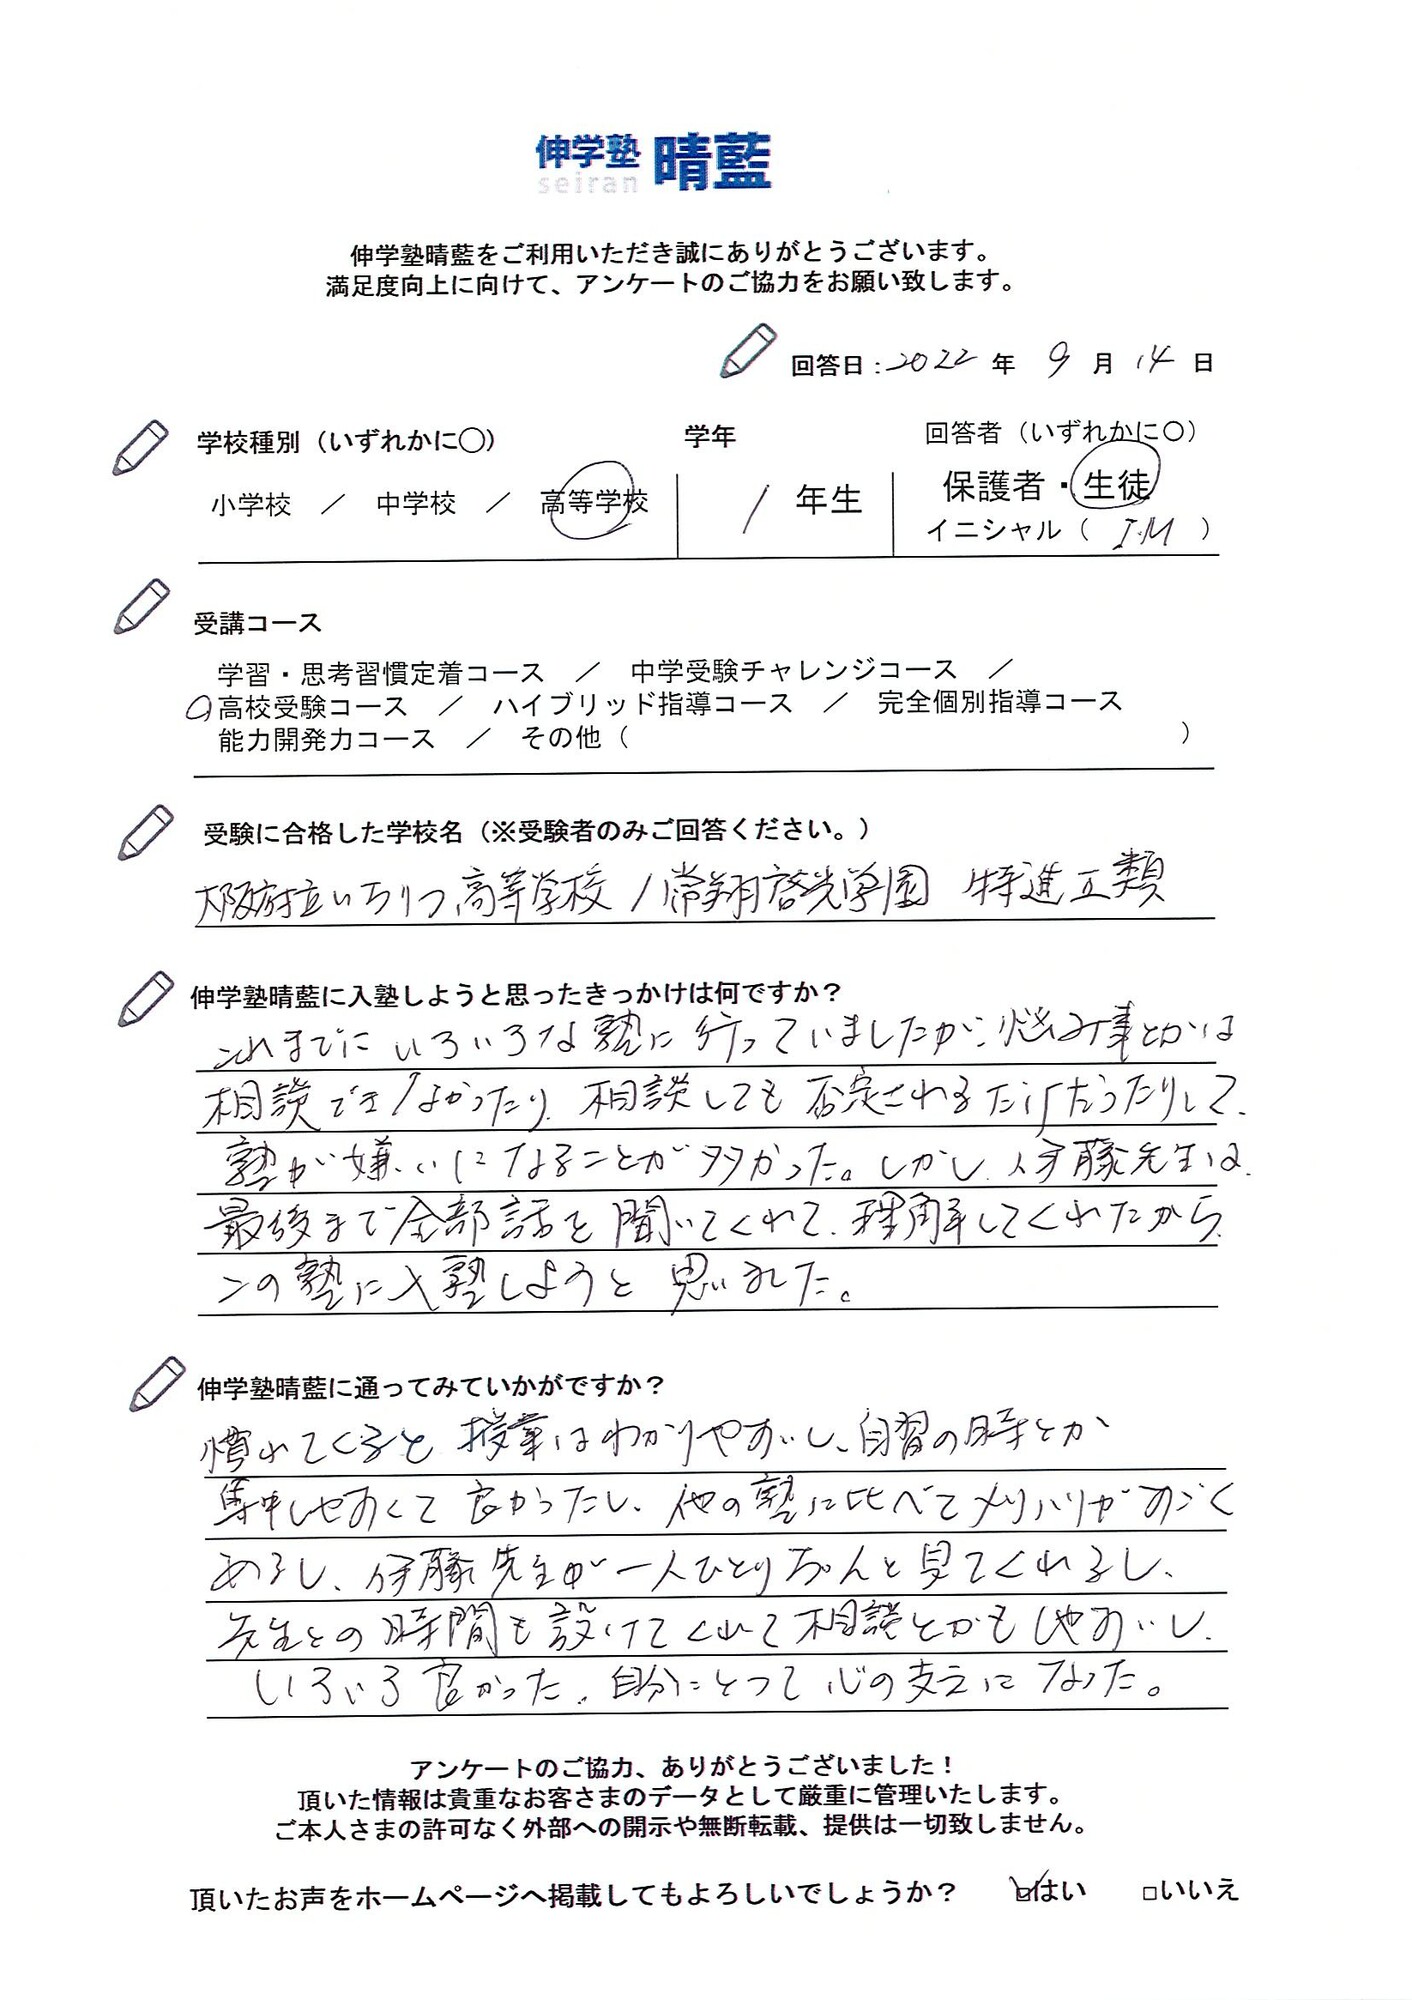 伸学塾 晴藍
seiran
伸学塾晴藍をご利用いただき誠にありがとうございます。
満足度向上に向けて、アンケートのご協力をお願い致します。
回答日:2022 年 9 月 14 日
学校種別（いずれかに〇） 学年 回答者（いずれかに〇）
小学校 ／ 中学校 ／ 高等学校 1 年生 保護者・生徒
イニシャル（ I.M ）
受講コース
学習・思考習慣定着コース ／ 中学受験チャレンジコース ／
〇高校受験コース ／ ハイブリッド指導コース ／ 完全個別指導コース
能力開発力コース ／ その他（ ）
受験に合格した学校名（※受験者のみご回答ください。）
大阪府立いちりつ高等学校 / 常翔啓光学園 特進Ⅱ類
伸学塾晴藍に入塾しようと思ったきっかけは何ですか？
これまでにいろいろな塾に行っていましたが、悩み事とかは
相談できなかったり、相談しても否定されるだけだったりして、
塾が嫌いになることが多かった。しかし、伊藤先生は、
最後まで全部話を聞いてくれて、理解してくれたから、
この塾に入塾しようと思いました。
伸学塾晴藍に通ってみていかがですか？
慣れてくると授業はわかりやすいし、自習の時とか
集中しやすくて良かったし、他の塾に比べてメリハリがすごく
あるし、伊藤先生が一人ひとりちゃんと見てくれるし、
先生との時間も設けてくれて相談とかもしやすいし、
いろいろ良かった。自分にとって心の支えになった。
アンケートのご協力、ありがとうございました！
頂いた情報は貴重なお客さまのデータとして厳重に管理いたします。
ご本人さまの許可なく外部への開示や無断転載、提供は一切致しません。
頂いたお声をホームページへ掲載してもよろしいでしょうか？ ☑はい □いいえ